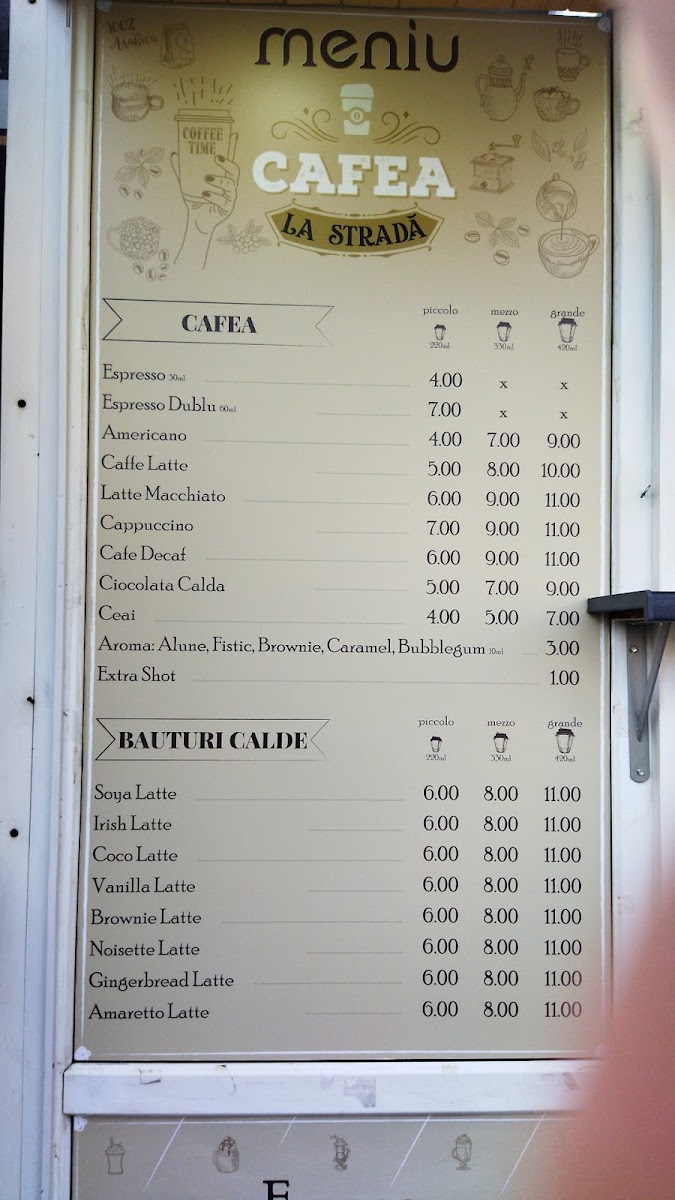 100%
Arabica
meniu
COFFEE
TIME
CAFEA
LA STRADĂ
CAFEA piccolo mezzo grande
220ml 330ml 420ml
Espresso 30ml 4.00 x x
Espresso Dublu 60ml 7.00 x x
Americano 4.00 7.00 9.00
Caffe Latte 5.00 8.00 10.00
Latte Macchiato 6.00 9.00 11.00
Cappuccino 7.00 9.00 11.00
Cafe Decaf 6.00 9.00 11.00
Ciocolata Calda 5.00 7.00 9.00
Ceai 4.00 5.00 7.00
Aroma: Alune, Fistic, Brownie, Caramel, Bubblegum 10ml 3.00
Extra Shot 1.00
BAUTURI CALDE piccolo mezzo grande
220ml 330ml 420ml
Soya Latte 6.00 8.00 11.00
Irish Latte 6.00 8.00 11.00
Coco Latte 6.00 8.00 11.00
Vanilla Latte 6.00 8.00 11.00
Brownie Latte 6.00 8.00 11.00
Noisette Latte 6.00 8.00 11.00
Gingerbread Latte 6.00 8.00 11.00
Amaretto Latte 6.00 8.00 11.00